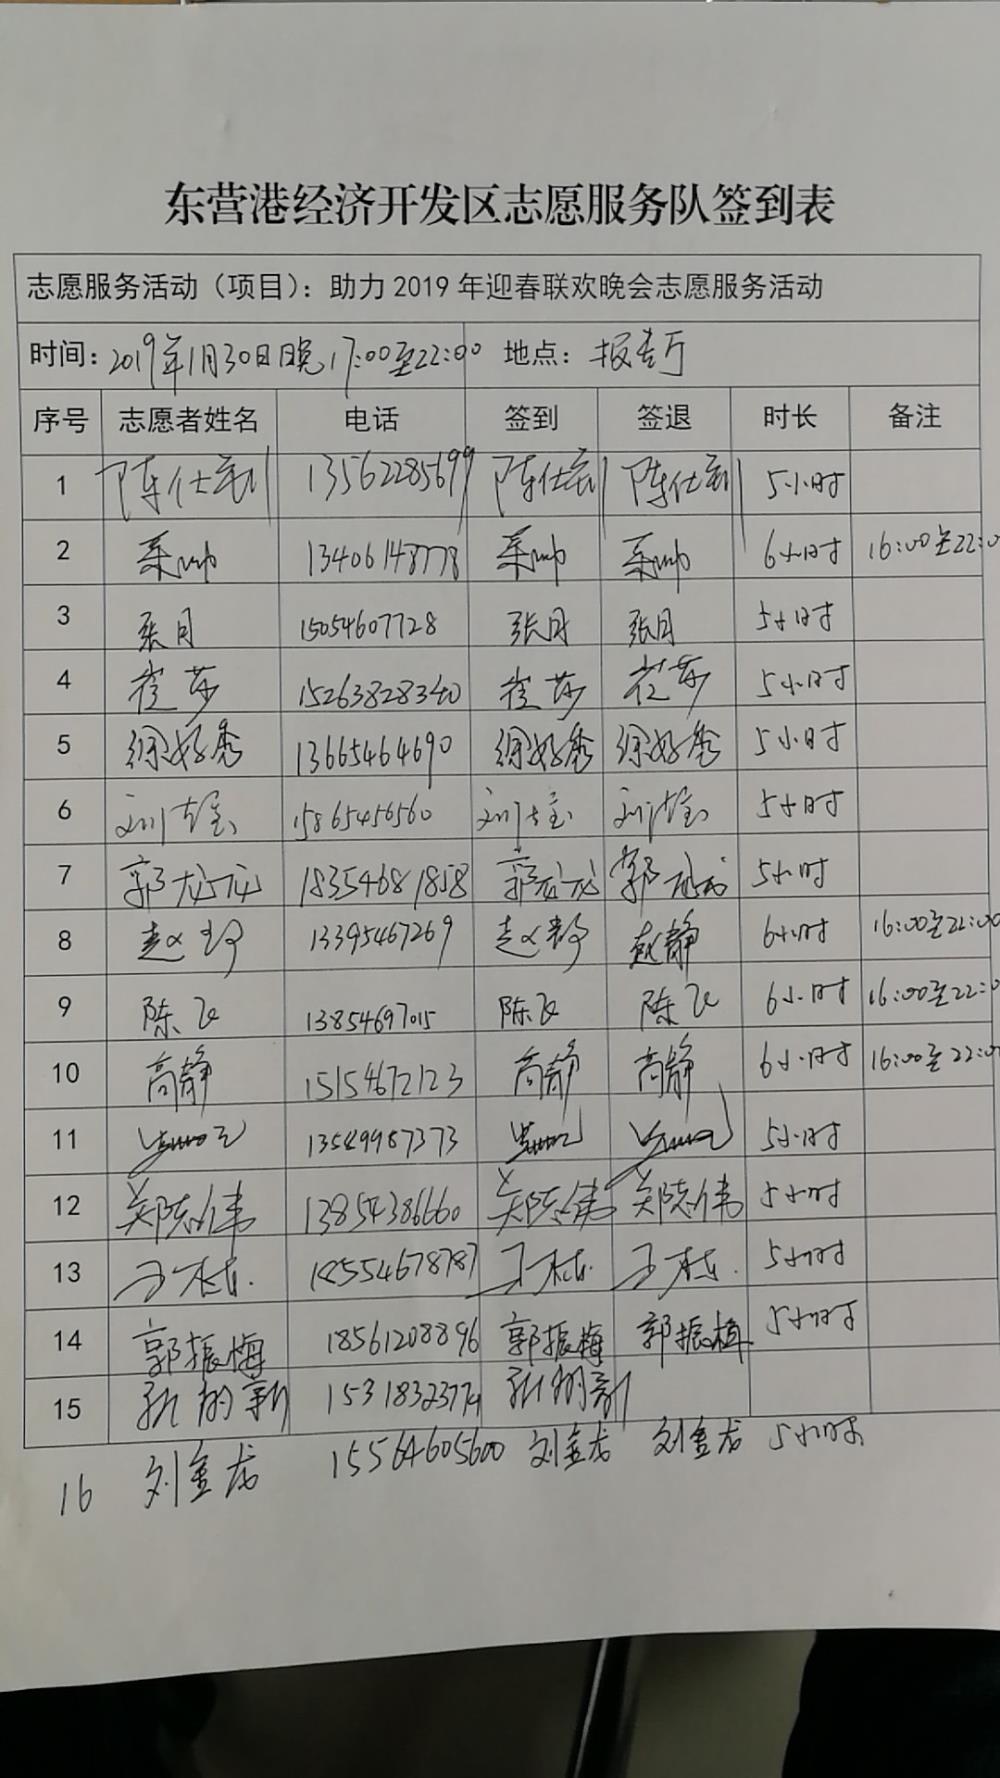 东营港经济开发区志愿服务队签到表
志愿服务活动（项目）：助力2019年迎春联欢晚会志愿服务活动
时间：2019年1月30日晚17:00至22:00 地点：报告厅
序号 志愿者姓名 电话 签到 签退 时长 备注
1 陈仕利 13562285699 陈仕利 陈仕利 5小时
2 13406148778 6小时 16:00至22:0
3 张月 15054607728 张月 张月 5小时
4 崔莎 15263828340 崔莎 崔莎 5小时
5 徐好秀 13665464690 徐好秀 徐好秀 5小时
6 15865456560 5小时
7 郭龙龙 18354681858 郭龙龙 郭龙龙 5小时
8 赵静 13395467269 赵静 赵静 6小时 16:00至22:00
9 陈飞 13854697015 陈飞 陈飞 6小时 16:00至22:0
10 高静 15154672123 高静 高静 6小时 16:00至22:0
11 13549987373 5小时
12 郑志伟 13854386660 郑志伟 郑志伟 5小时
13 18554678787 5小时
14 郭振梅 18561208896 郭振梅 郭振梅 5小时
15
16 刘金龙 15564605600 刘金龙 刘金龙 5小时